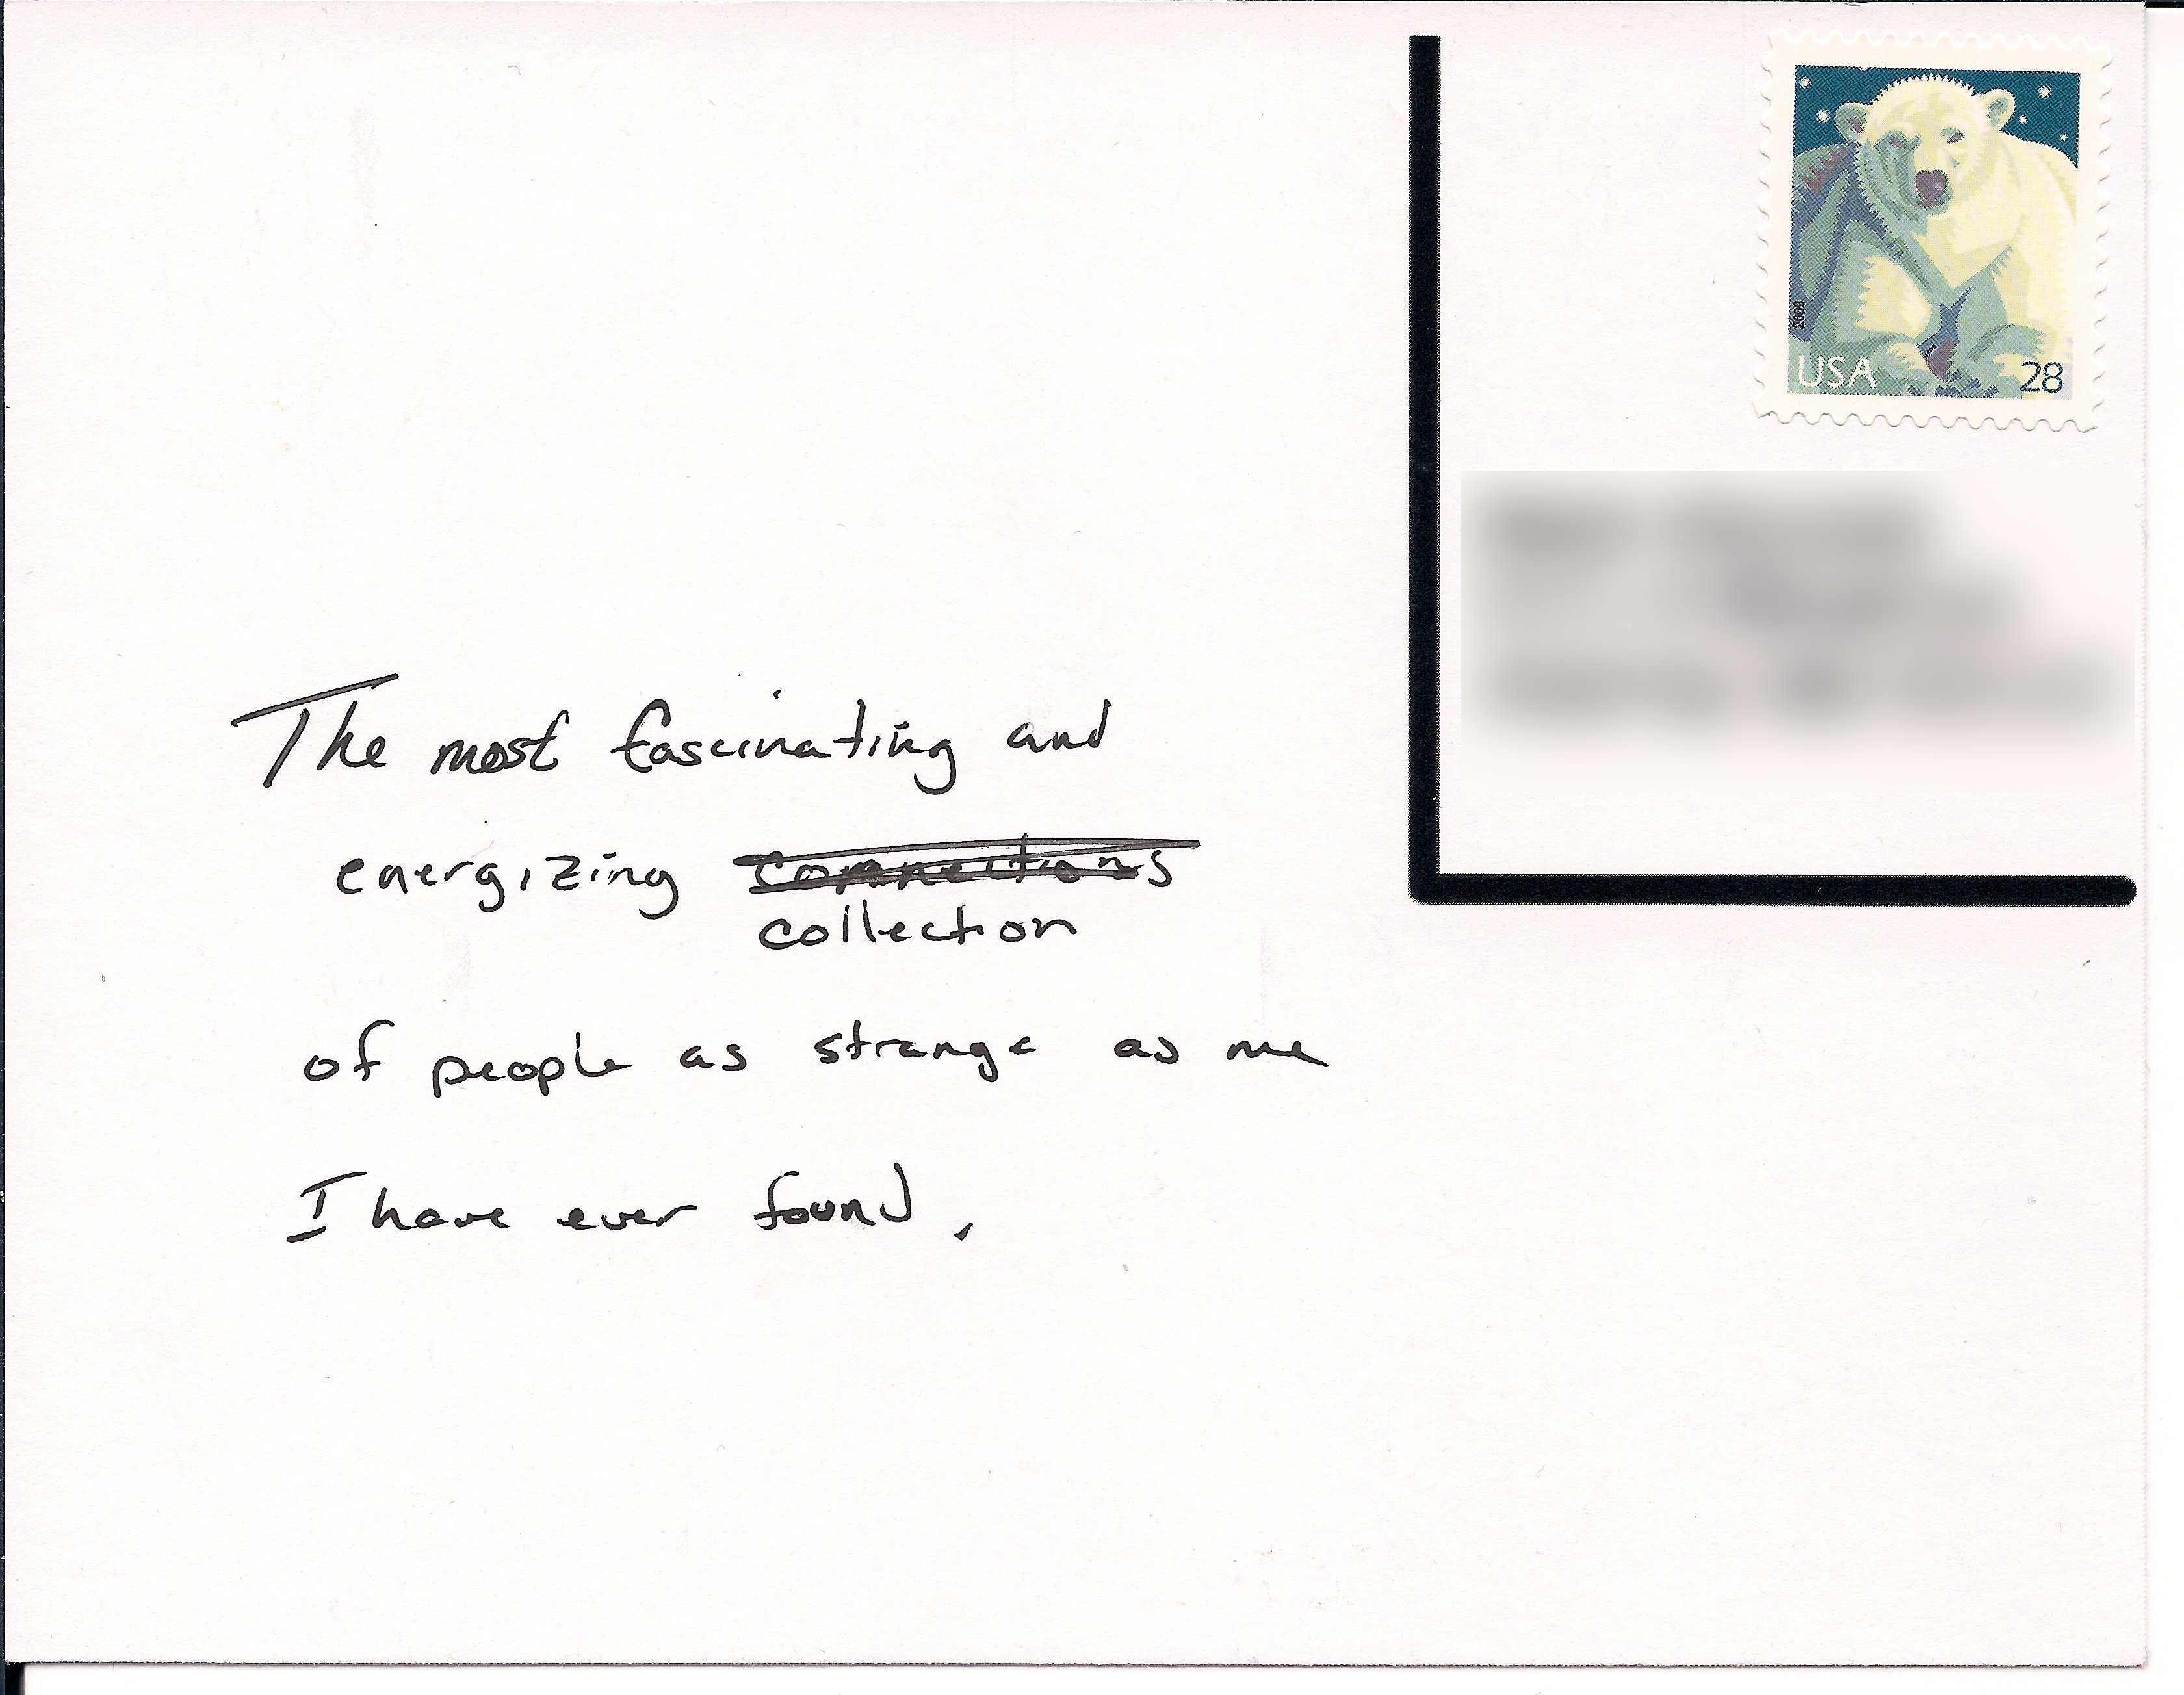 The most fascinating and
energizing connections
collection
of people as strange as me
I have ever found.
2009
USA 28